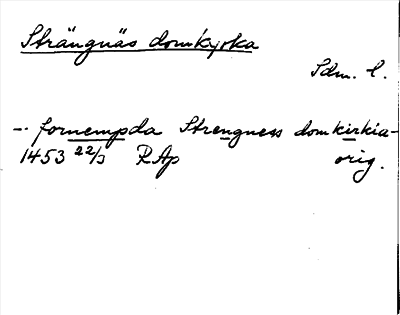 Strängnäs domkyrka
Sdm. l.
–. fornempda Strengness domkirkia–
1453 22/3 RAp orig.